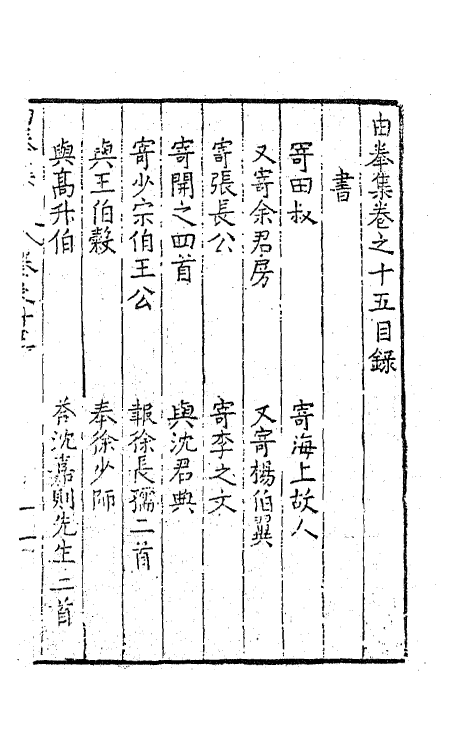 由拳集卷之十五目錄
書
寄田叔 寄海上故人
又寄余君房 又寄楊伯翼
寄張長公 寄李之文
寄開之四首 與沈君典
寄少宗伯王公 報徐長孺二首
與王伯穀 奉徐少師
與髙升伯 荅沈嘉則先生二首
卷之十五